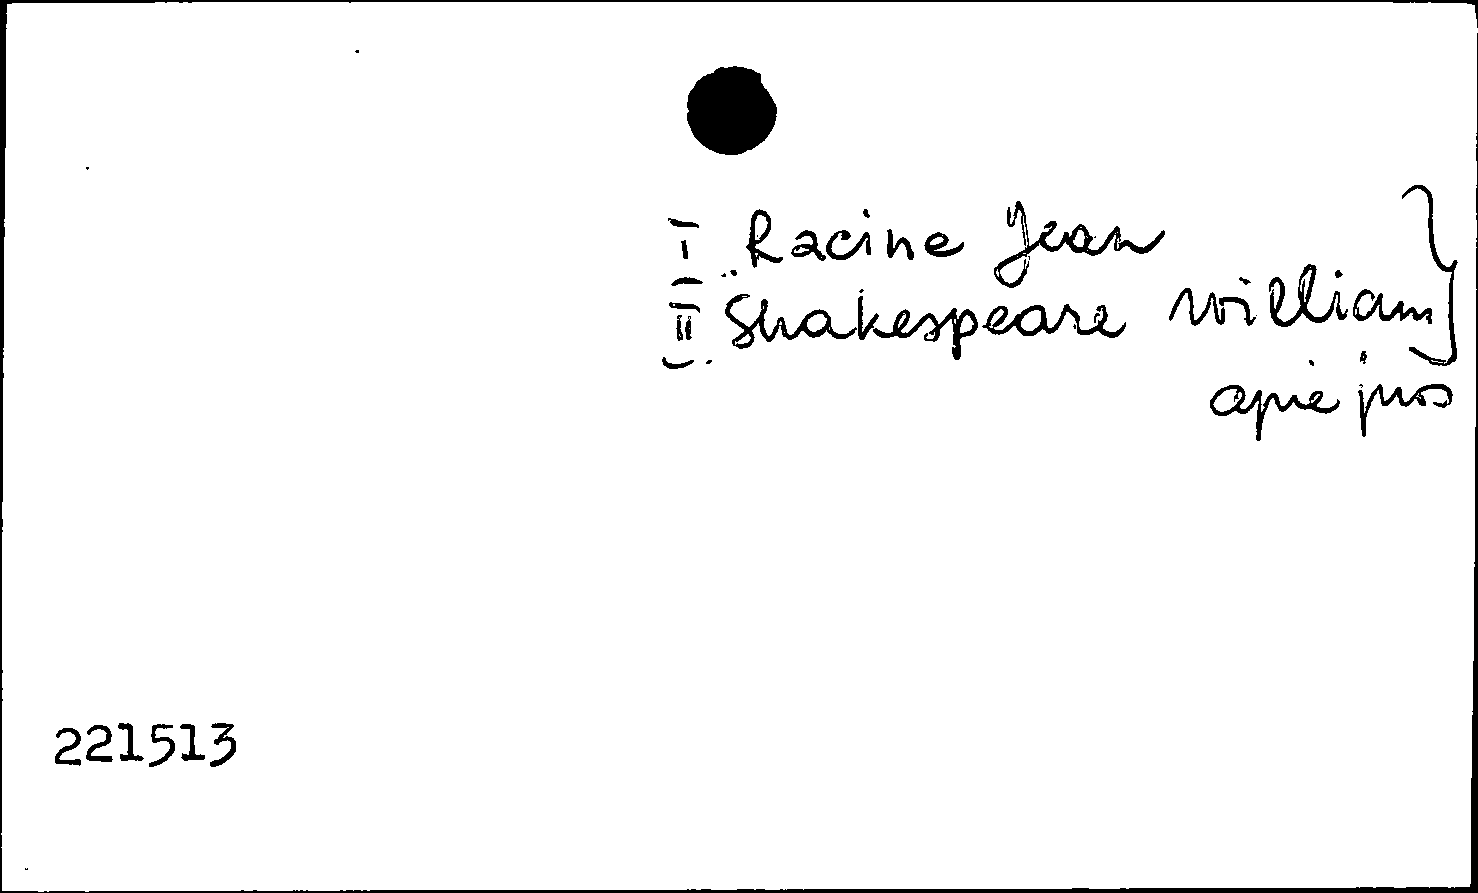 I. Racine Jean }
II. Shakespeare William }
apie juos
221513